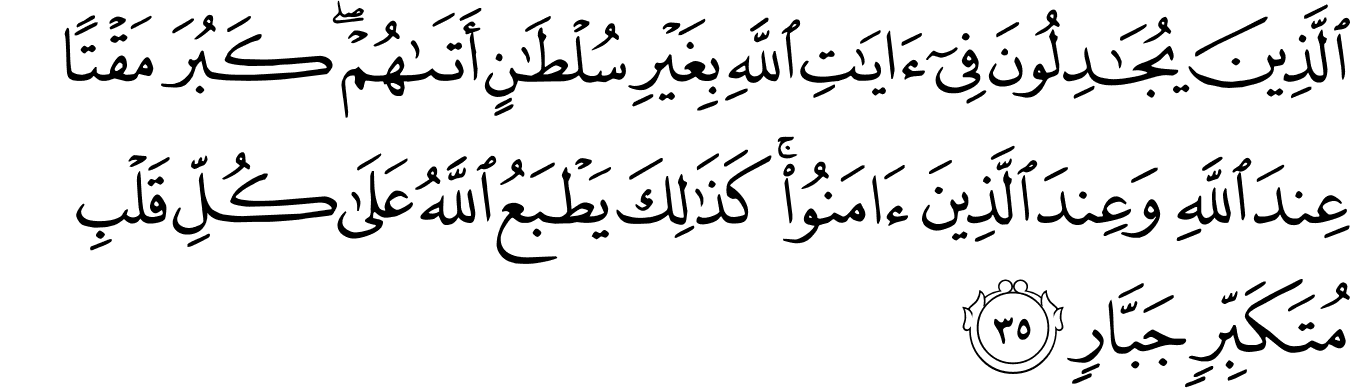 ٱلَّذِينَ يُجَـٰدِلُونَ فِىٓ ءَايَـٰتِ ٱللَّهِ بِغَيْرِ سُلْطَـٰنٍ أَتَىٰهُمْ ۖ كَبُرَ مَقْتًا
عِندَ ٱللَّهِ وَعِندَ ٱلَّذِينَ ءَامَنُوا۟ ۚ كَذَٰلِكَ يَطْبَعُ ٱللَّهُ عَلَىٰ كُلِّ قَلْبِ
مُتَكَبِّرٍ جَبَّارٍ ٣٥